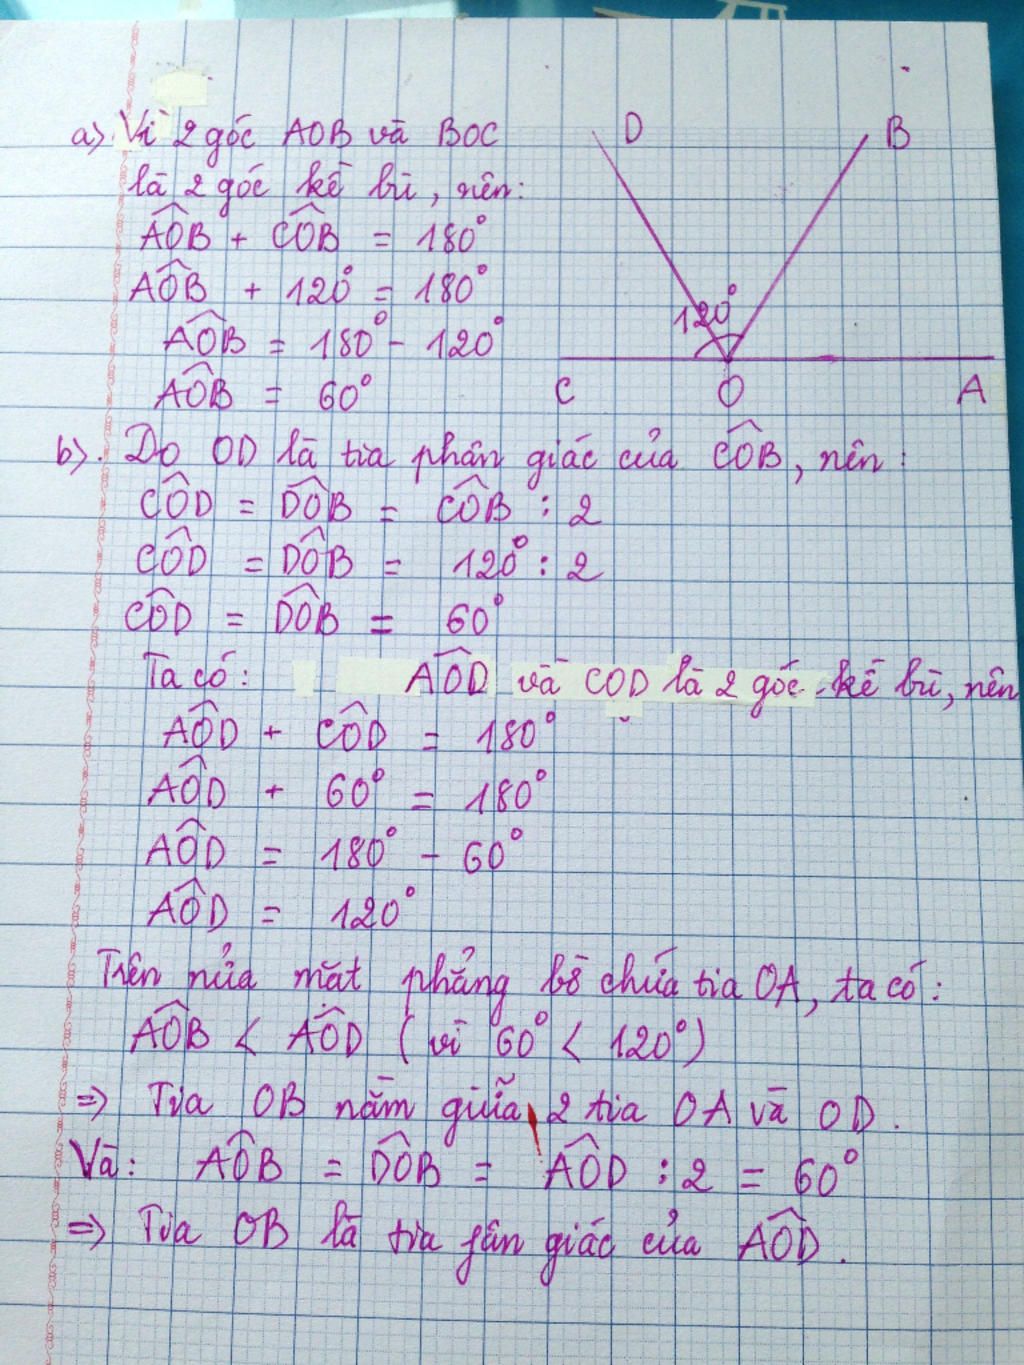 a) Vì 2 góc AOB và BOC
là 2 góc kề bù, nên:
AÔB + CÔB = 180°
AÔB + 120° = 180°
AÔB = 180° - 120°
AÔB = 60°
D
B
120°
C
O
A
b). Do OD là tia phân giác của CÔB, nên:
CÔD = DÔB = CÔB : 2
CÔD = DÔB = 120° : 2
CÔD = DÔB = 60°
Ta có: AÔD và COD là 2 góc kề bù, nên
AÔD + CÔD = 180°
AÔD + 60° = 180°
AÔD = 180° - 60°
AÔD = 120°
Trên nửa mặt phẳng bờ chứa tia OA, ta có:
AÔB < AÔD (vì 60° < 120°)
=> Tia OB nằm giữa 2 tia OA và OD.
Và: AÔB = DÔB = AÔD : 2 = 60°
=> Tia OB là tia fân giác của AÔD.